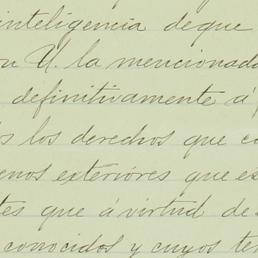 inteligencia de que
on U. la mencionada
definitivamente á
los los derechos que co
enos exteriores que es
tes que á virtud de
conocidos y cuyos ter